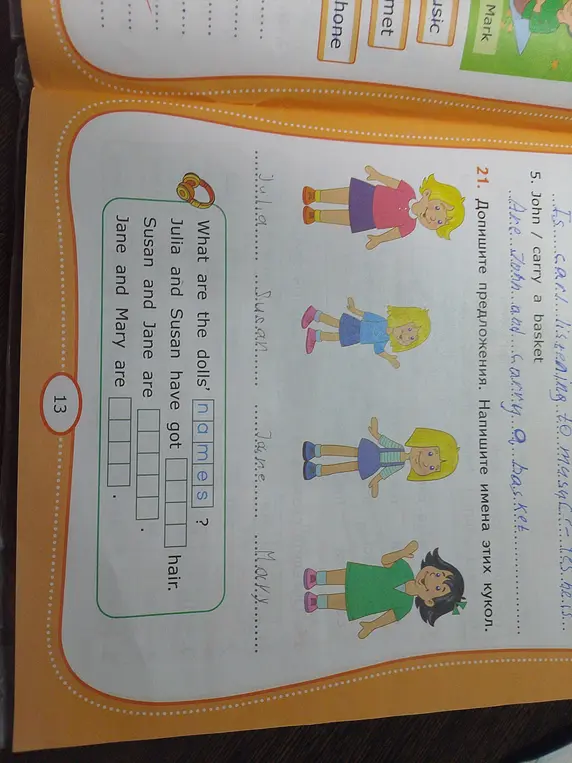 Mark
usic
met
hone
5. John / carry a basket
Are John and carry a basket
21. Допишите предложения. Напишите имена этих кукол.
Julia Susan Jane Mary
What are the dolls' names ?
Julia and Susan have got hair.
Susan and Jane are .
Jane and Mary are .
13